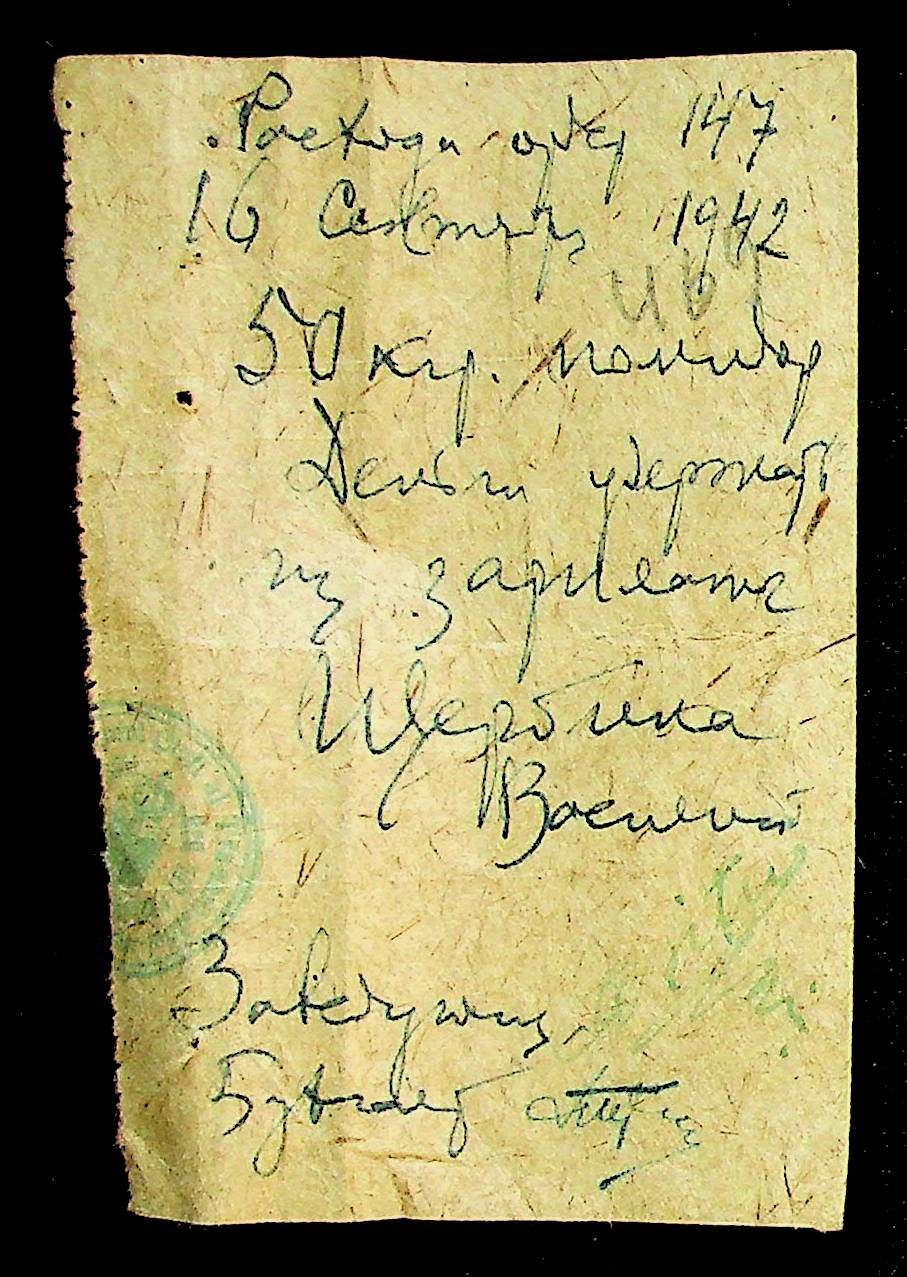 Расходн ордер 147
16 Сентября 1942
50 кгр. помидор
Деньги удержать
из зарплаты
Щербина
Василий
Заведующ.
Бухгалтер